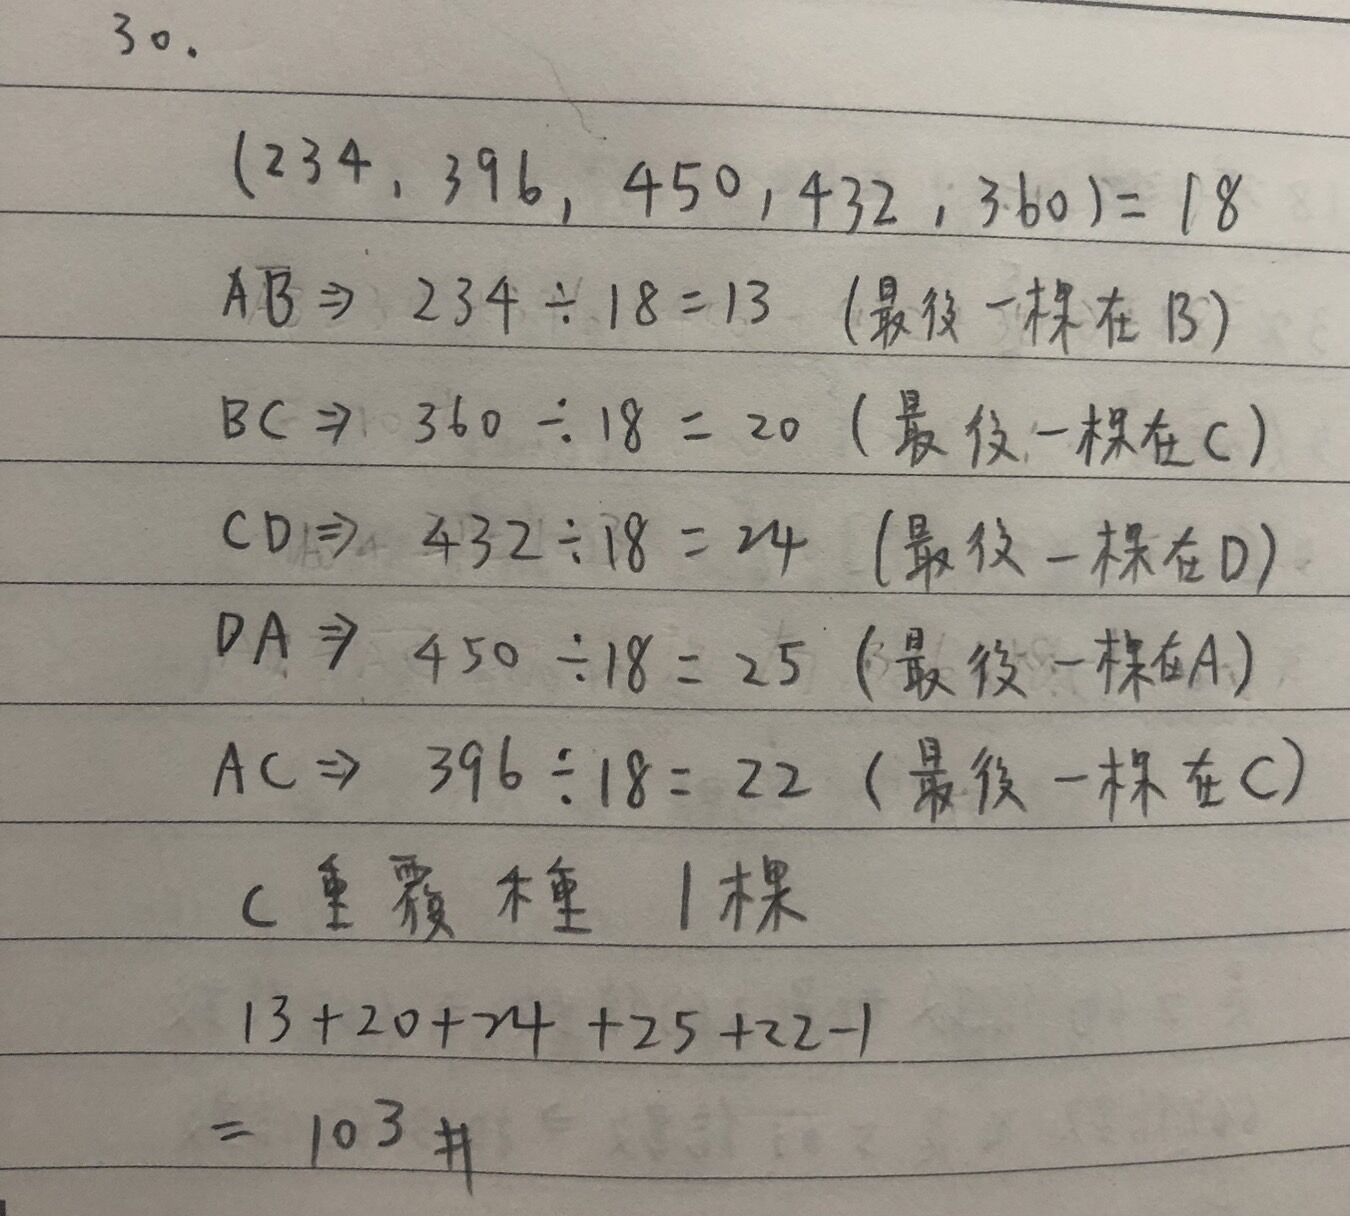 30.
(234, 396, 450, 432, 360) = 18
AB ⇒ 234 ÷ 18 = 13 (最後一棵在B)
BC ⇒ 360 ÷ 18 = 20 (最後一棵在C)
CD ⇒ 432 ÷ 18 = 24 (最後一棵在D)
DA ⇒ 450 ÷ 18 = 25 (最後一棵在A)
AC ⇒ 396 ÷ 18 = 22 (最後一棵在C)
C 重覆種 1棵
13+20+24+25+22-1
= 103 #